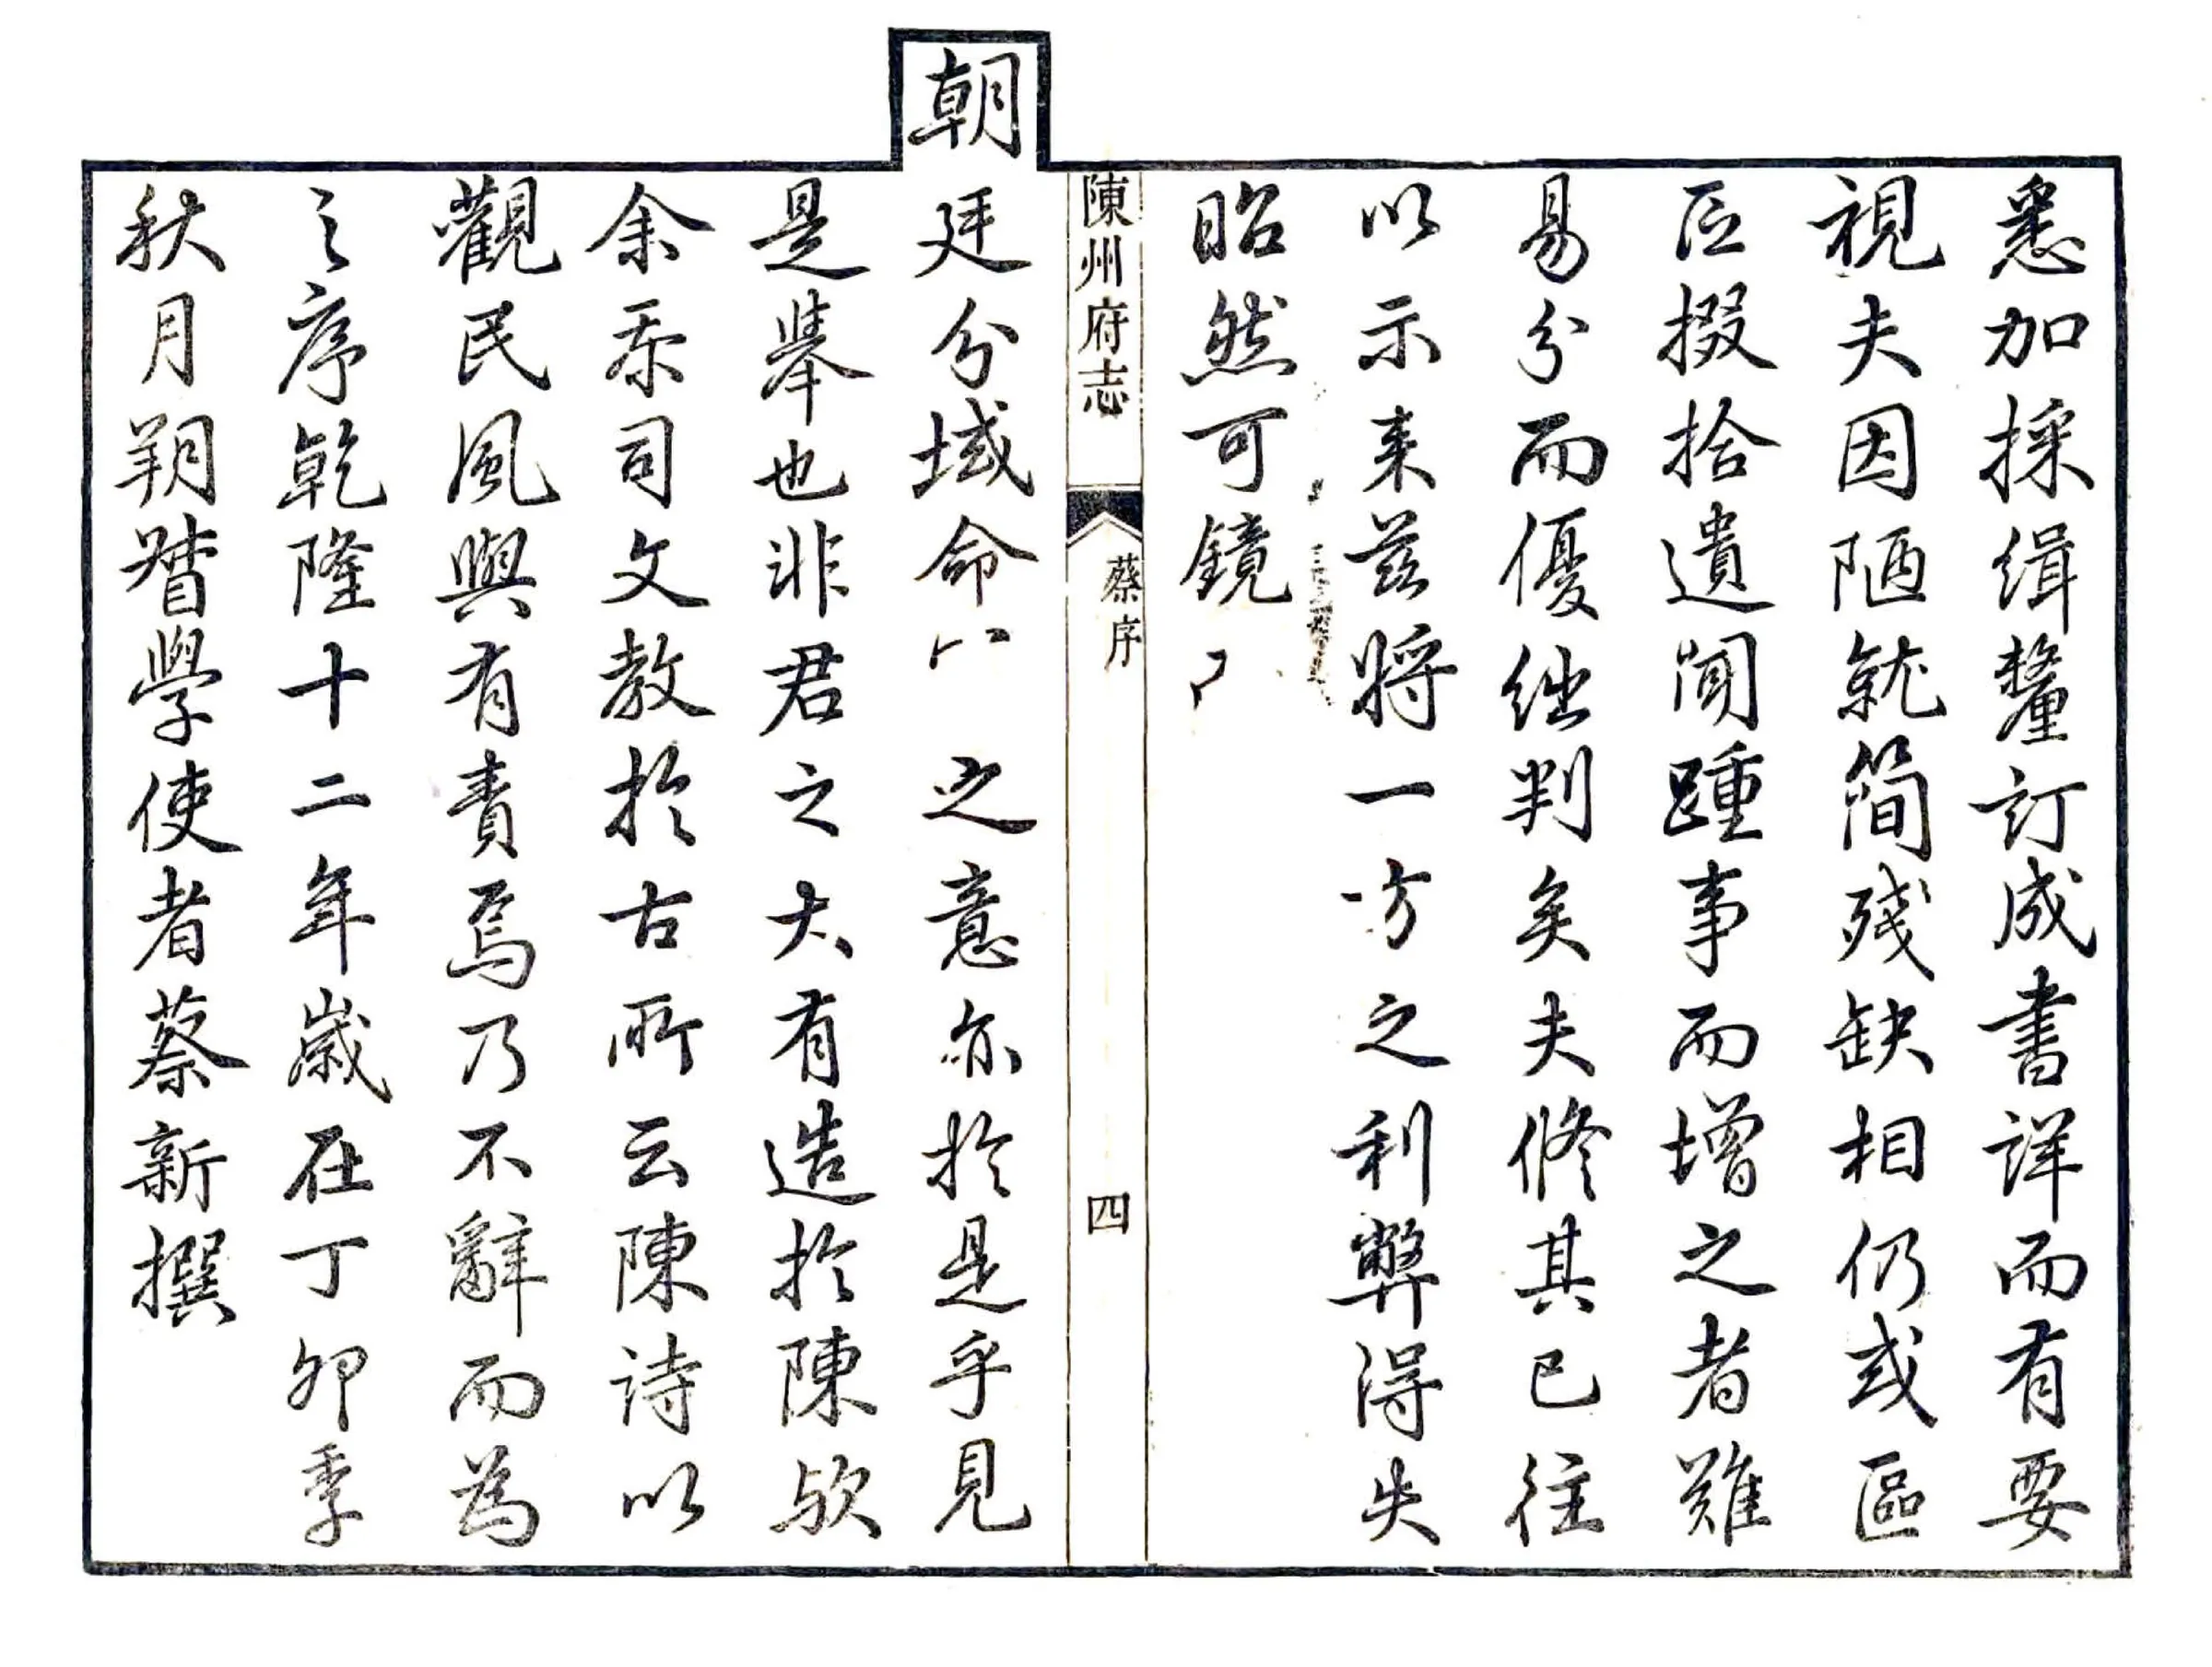 悉加採緝釐訂成書詳而有要
視夫因陋就簡殘缺相仍或區
區掇拾遺聞踵事而增之者難
易分而優絀判矣夫修其已往
以示来茲將一方之利弊得失
昭然可鏡
陳州府志
蔡序
四
朝
廷分域命之意亦於是乎見
是舉也非君之大有造於陳歟
余忝司文教於古所云陳詩以
觀民風與有責焉乃不辭而為
之序乾隆十二年歲在丁卯季
秋月朔督學使者蔡新撰